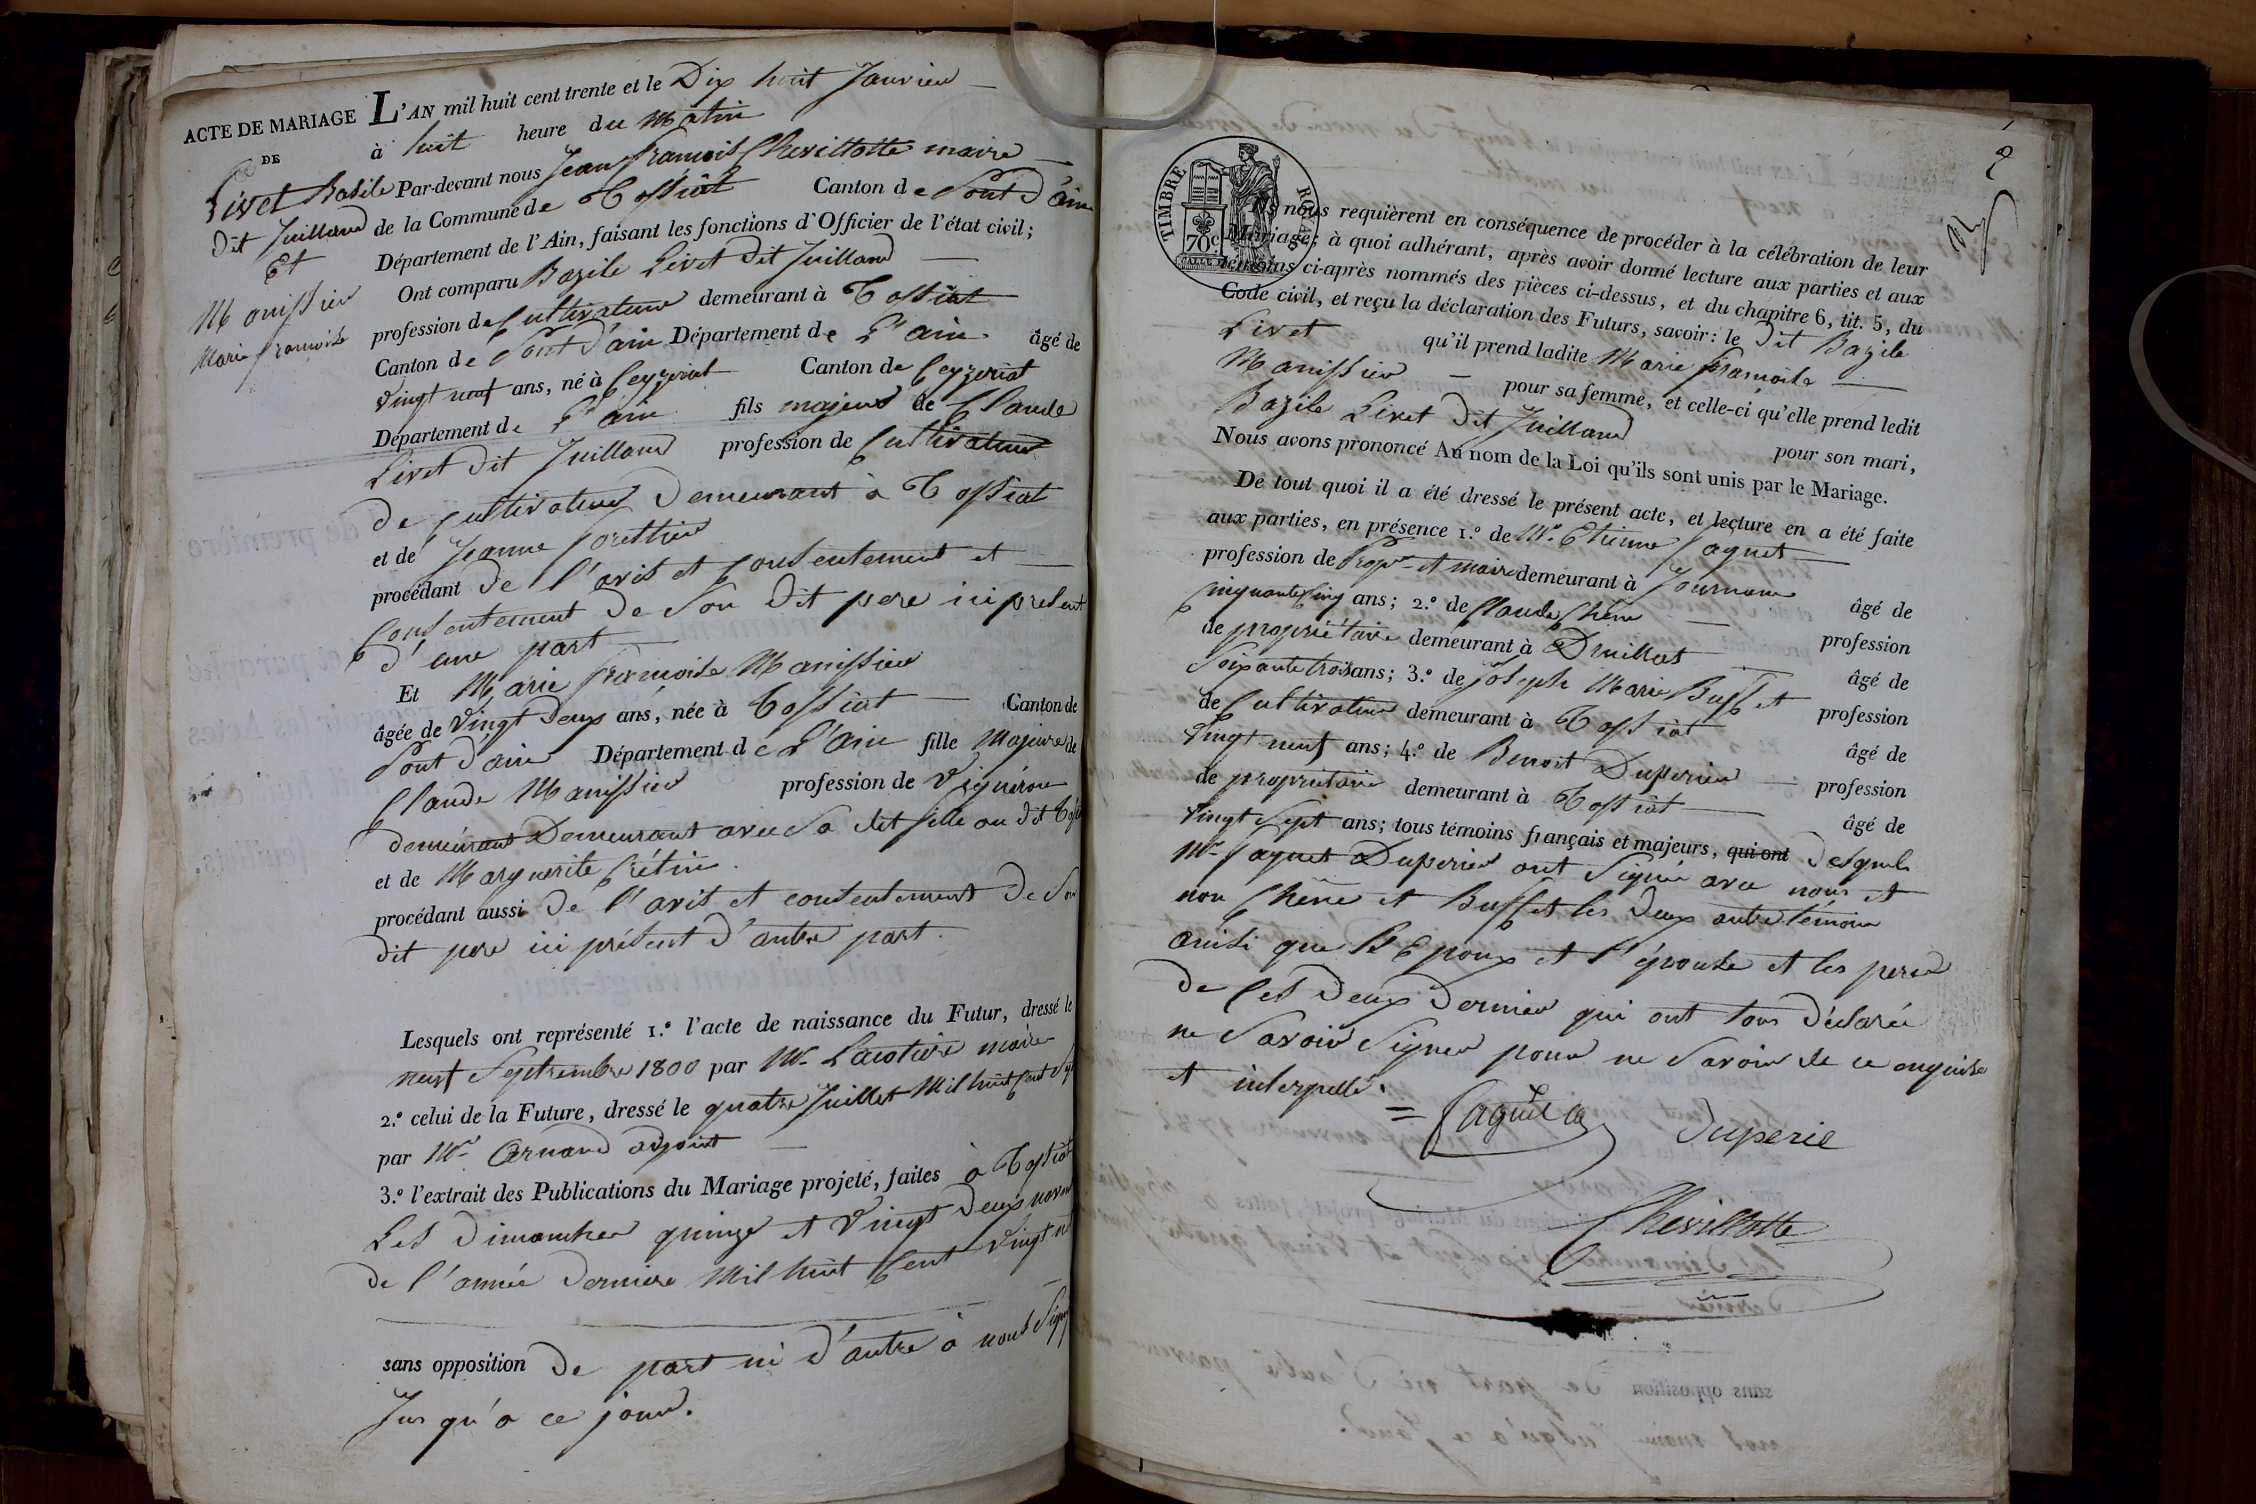 ACTE DE MARIAGE
DE
Livet Basile
dit Juilland
Et
Manissier
Marie françoise
L'AN mil huit cent trente et le Dix huit Janvier
à huit heure du Matin
Par-devant nous Jean françois Chevillotte maire
de la Commune de Tossiat Canton de Pont d'ain
Département de l'Ain, faisant les fonctions d'Officier de l'état civil;
Ont comparu Bazile Livet dit Juilland
profession de Cultivateur demeurant à Tossiat
Canton de Pont d'ain Département de L'ain âgé de
vingt neuf ans, né à Ceyzeriat Canton de Ceyzeriat
Département de L'ain fils majeur de Claude
Livet dit Juilland profession de Cultivateur
de Cultivateur demeurant à Tossiat
et de Jeanne
procédant de l'avis et Consentement et
Consentement de Son dit pere ici présent
d'une part
Et Marie françoise Manissier
âgée de vingt deux ans, née à Tossiat Canton de
Pont d'ain Département de L'Ain fille Majeure de
Claude Manissier profession de Vigneron
demeurant Demeurant avec Sa dit fille au dit
et de Marguerite Crétin
procédant aussi de l'avis et consentement de Son
dit pere ici présent d'autre part.
Lesquels ont représenté 1.º l'acte de naissance du Futur, dressé le
neuf Septembre 1800 par Mr. maire
2.º celui de la Future, dressé le quatre Juillet Mil huit Cent Sept
par Mr. Arnand adjoint
3.º l'extrait des Publications du Mariage projeté, faites à Tossiat
Les Dimanches quinze et Vingt Deux
de l'année Derniere Mil huit Cent Vingt
sans opposition de part ni d'autre à nous
Jusqu'à ce jour.
2
TIMBRE ROYAL
70c
Ils nous requièrent en conséquence de procéder à la célébration de leur
Mariage; à quoi adhérant, après avoir donné lecture aux parties et aux
témoins ci-après nommés des pièces ci-dessus, et du chapitre 6, tit. 5, du
Code civil, et reçu la déclaration des Futurs, savoir: le dit Bazile
Livet qu'il prend ladite Marie françoise
Manissier pour sa femme, et celle-ci qu'elle prend ledit
Bazile Livet dit Juilland pour son mari,
Nous avons prononcé Au nom de la Loi qu'ils sont unis par le Mariage.
De tout quoi il a été dressé le présent acte, et lecture en a été faite
aux parties, en présence 1.º de Mr. Etienne Jaguet
profession de Propre et maire demeurant à Journans âgé de
Cinquante Cinq ans; 2.º de Claude Chêne profession
de propriétaire demeurant à Druillat âgé de
Soixante trois ans; 3.º de Joseph Marie Buffet profession
de Cultivateur demeurant à Tossiat âgé de
vingt neuf ans; 4.º de Benoit Duperier profession
de propriétaire demeurant à Tossiat âgé de
vingt Sept ans; tous témoins français et majeurs, qui ont desquels
Mr. Jaguet Duperier ont Signé avec nous et
non Chêne et Buffet les Deux autre témoin
ainsi que les Epoux et l'épouse et les peres
de Ces Deux Dernier qui ont tous déclaré
ne Savoir Signer pour ne Savoir de ce enquise
et interpellé.
Duperié
Chevillotte